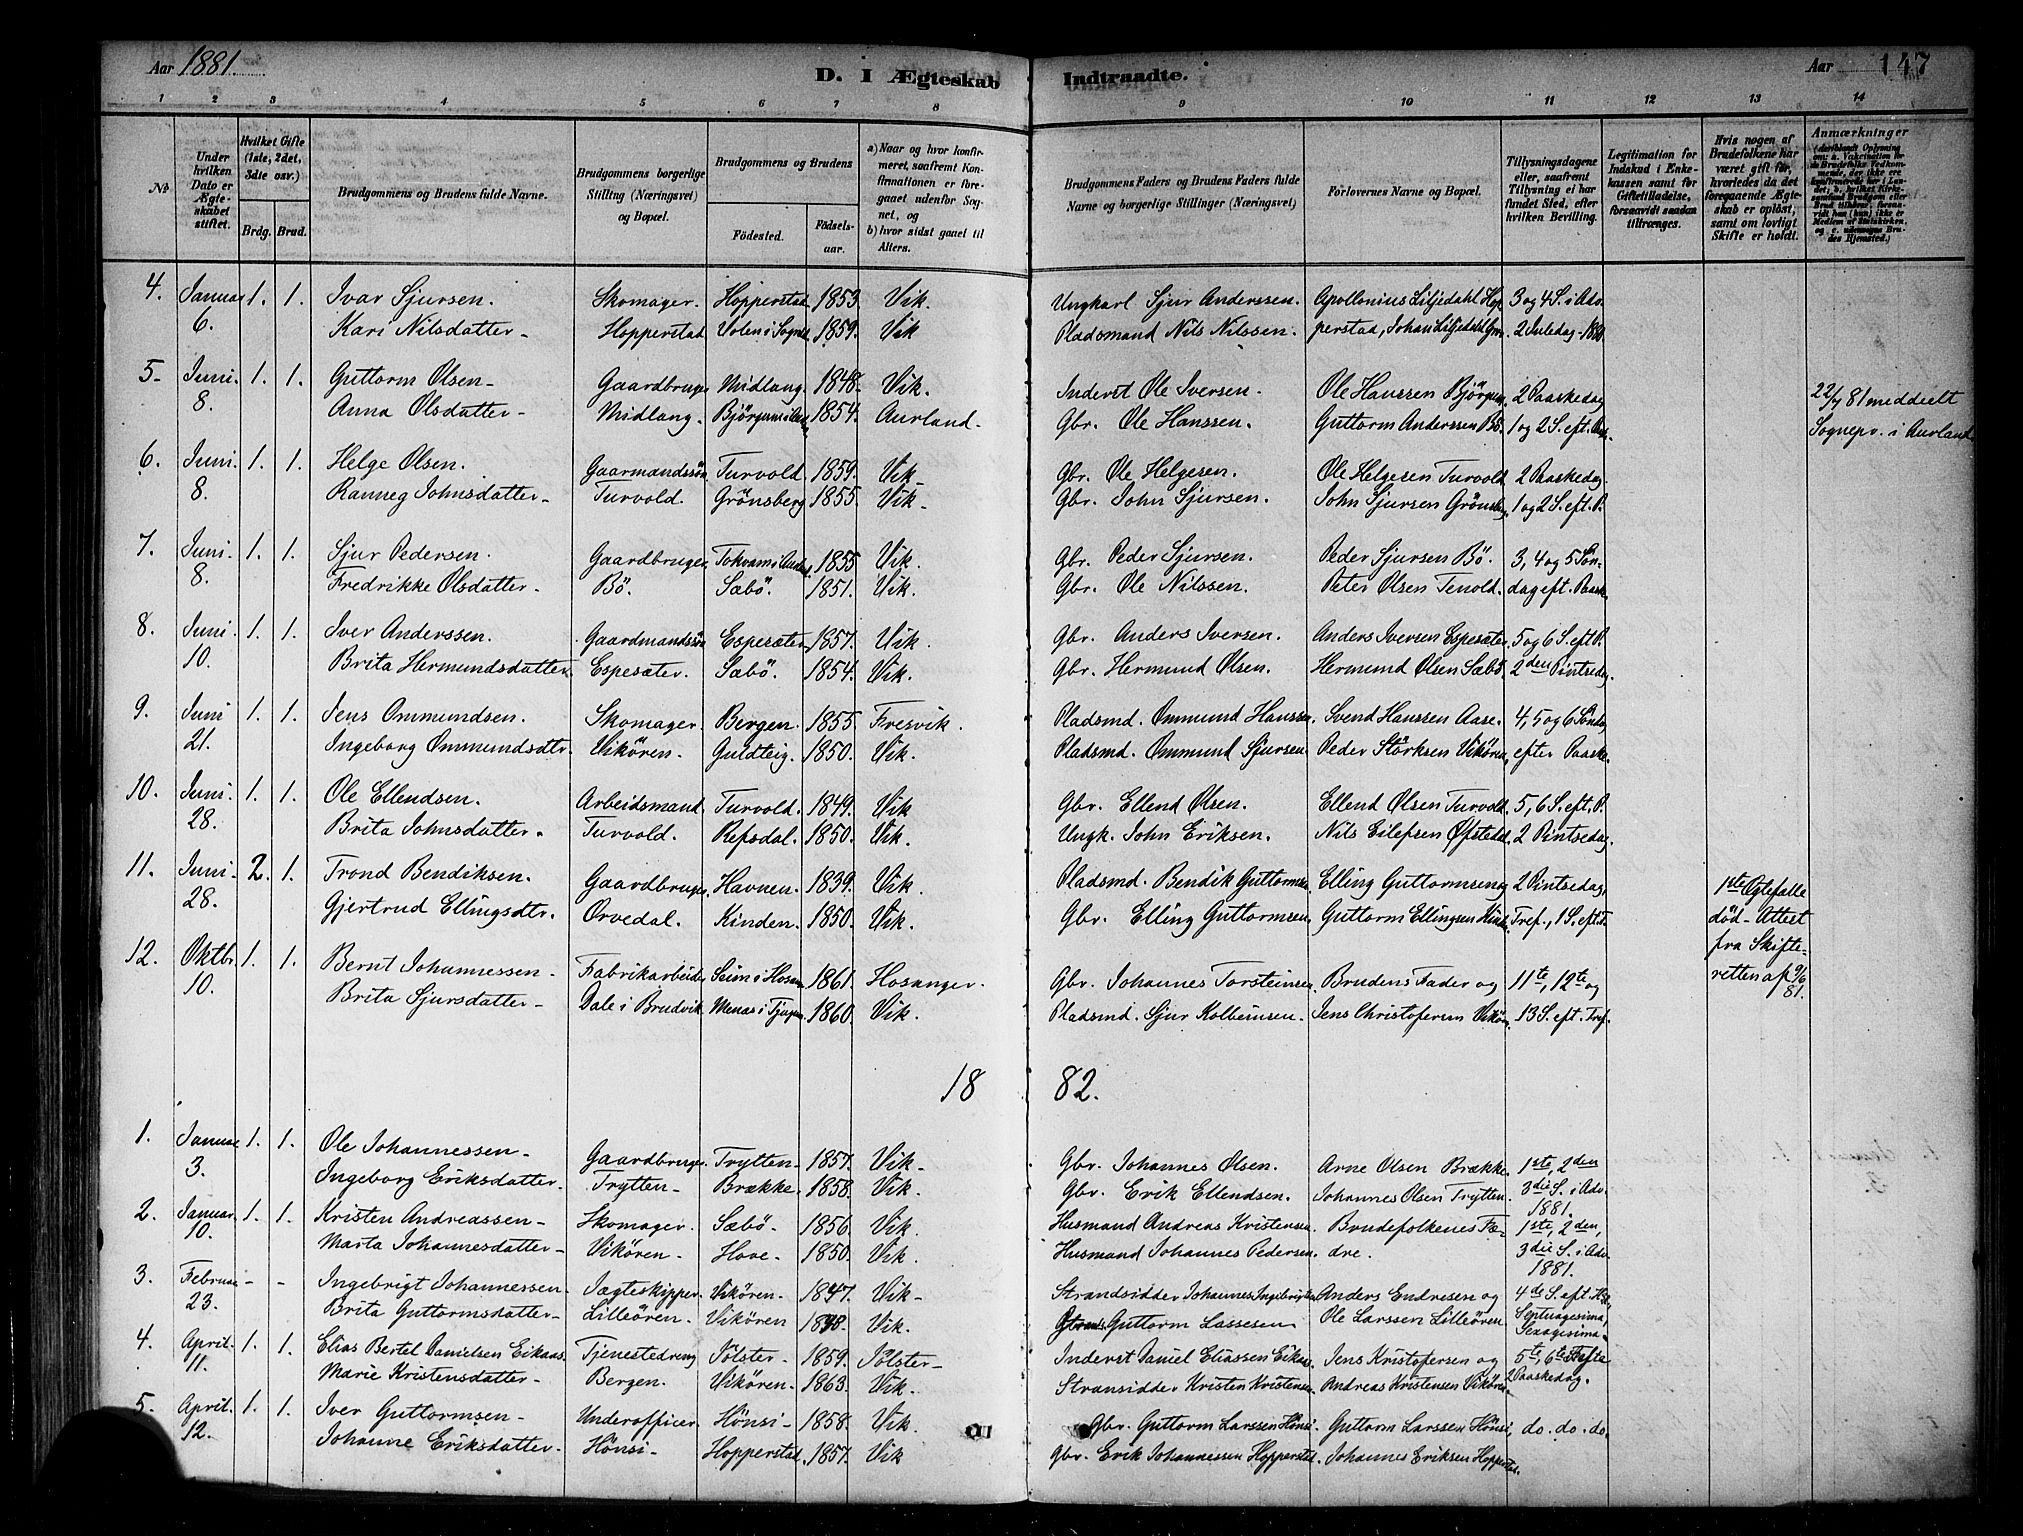 Aar 1881.
D. I Ægteskab Indtraadte.
Aar 147
1 2 3 4 5 6 7 8 9 10 11 12 13 14
No
Under hvilken Dato er Ægteskabet stiftet.
Hvilket Gifte (1ste, 2det, 3dte osv.)
Brdg. Brud.
Brudgommens og Brudens fulde Navne.
Brudgommens borgerlige Stilling (Næringsvei) og Bopæl.
Brudgommens og Brudens
Födested. Födselsaar.
a) Naar og hvor konfirmeret, saafremt Konfirmationen er foregaaet udenfor Sognet, og
b) hvor sidst gaaet til Alters.
Brudgommens Faders og Brudens Faders fulde Navne og borgerlige Stillinger (Næringsvei)
Forlovernes Navne og Bopæl.
Tillysningsdagene eller, saafremt Tillysning ei har fundet Sted, efter hvilken Bevilling.
Legitimation for Indskud i Enkekassen samt for Giftetilladelse, forsaavidt saadan tiltrænges.
Hvis nogen af Brudefolkene har været gift før, hvorledes da det foregaaende Ægteskab er opløst, samt om lovligt Skifte er holdt.
Anmærkninger
4. Januar 1. 1. Ivar Sjursen. Skomager. Hopperstad 1853. Vik. Ungkarl Sjur Anderssen. Apollonius Liljedahl Hop- 3 og 4 S. i Adv.
6. Kari Nilsdatter - Hopperstad Volen i Sogndal 1859. Vik Pladsmand Nils Nilssen. perstad, Johan Liljedahl 2 Juledag - 1880
5. Juni. 1. 1. Guttorm Olsen - Gaardbruger Midlang. 1848. Vik. Inderst Ole Iversen. Ole Hanssen Björgum, 2 Paaskedag
8. Anna Olsdatter - Midlang. 1854. Aurland. Gbr. Ole Hanssen. Guttorm Anderssen Bö. 1 og 2 S. eft. Paas.
22/7 81 meddelt
Sognepr. i Aurland
6. Juni. 1. 1. Helge Olsen. Gaarmandssön Turvold. 1859. Vik - Gbr. Ole Helgesen. Ole Helgesen Turvold 2 Paaskedag.
8. Ranneg Johnsdatter - Turvold. Grönsberg 1855. Vik - Gbr. John Sjursen. John Sjursen Grönsberg 1 og 2 S. eft. P.
7. Juni. 1. 1. Sjur Pedersen. Gaardbruger. 1855 Vik. Gbr. Peder Sjursen. Peder Sjursen Bö. 3, 4 og 5 Sön-
8. Fredrikke Olsdatter - Bö. Sæbö. 1851. Vik. Gbr. Ole Nilssen. Peter Olsen Tenold. dag eft. Paaske.
8. Juni. 1. 1. Iver Anderssen. Gaardmandssön Espesæter 1857. Vik. Gbr. Anders Iversen. Anders Iversen Espesæter. 5 og 6 S. eft. P.
10. Brita Hermundsdatter. Espesæter. Sæbö. 1854. Vik. Gbr. Hermund Olsen. Hermund Olsen Sæbö. 2den Pintsedag.
9. Juni 1. 1. Jens Ommundsen. Skomager. Bergen. 1855. Fresvik. Pladsmd. Ommund Hanssen. Svend Hanssen Aase. 4, 5 og 6 Söndag
21. Ingeborg Ommundsdtr. Vikören. Guldteig. 1850. Vik. Pladsmd. Ommund Sjursen. Peder Störksen Vikören efter Paaske.
10. Juni. 1. 1. Ole Ellendsen. Arbeidsmand Turvold. 1849. Vik Gbr. Ellend Olsen. Ellend Olsen Turvold. 5, 6 S. eft. P.
28. Brita Johnsdatter. Turvold. Refsdal. 1850. Vik. Ungk. John Eriksen. Nils Eilefsen Öfstedal. 2 Pintsedag.
11. Juni. 2. 1. Trond Bendiksen. Gaardbruger. Havnen. 1839. Vik. Pladsmd. Bendik Guttormsen. Elling Guttormsen og 2 Pintsedag,
28. Gjertrud Ellingsdtr. Orvedal. Kinden. 1850. Vik. Gbr. Elling Guttormsen. Guttorm Ellingsen Kinden. Tref., 1 S. eft. T.
1ste Ægtefælle
död - Attest
fra Skifte-
retten af 9/6
81.
12. Oktbr. 1. 1. Bernt Johannessen - Fabrikarbeider Seim i Hosan. 1861. Hosanger. Gbr. Johannes Torsteinsen. Brudens Fader og 11te, 12te og
10. Brita Sjursdatter - Dale i Brudvik. 1860. Vik. Pladsmd. Sjur Kolbeinsen. Jens Christofersen Vikören. 13 S. eft. Tref.
1882.
1. Januar 1. 1. Ole Johannessen - Gaardbruger. Trytten - 1857. Vik - Gbr. Johannes Olsen. Arne Olsen Brække. 1ste, 2den
3. Ingeborg Eriksdatter - Trytten - Brække. 1858. Vik. Gbr. Erik Ellendsen. Johannes Olsen Trytten. 3die S. i Adv.
1881.
2. Januar. 1. 1. Kristen Andreassen - Skomager. Sæbö. 1856. Vik. Husmand Andreas Kristensen. Brudefolkenes Fæ- 1ste, 2den,
10. Marta Johannesdatter - Vikören - Hove - 1850. Vik. Husmand Johannes Pedersen. dre. 3die S. i Adv.
1881.
3. Februar - - Ingebrigt Johannessen - Jægteskipper Vikören - 1847. Vik - Strandsidder Johannes Ingebrigtsen. Anders Endresen og 4de S. eft. H.
23. Brita Guttormsdatter - Lilleören. Vikören 1848. Vik. Guttorm Lassesen Ole Larssen Lilleören Septuagesima,
Sexagesima.
4. April. 1. 1. Elias Bertel Danielsen Eikaas. Tjenestedreng Jölster - 1859. Jölster - Inderst Daniel Eliassen Eikaas. Jens Kristofersen og 5te, 6te i Faste
11. Marie Kristensdatter - Bergen. Vikören - 1863. Vik. Stransidder Kristen Kristensen. Andreas Kristensen Vikören. 2 Paaskedag.
5. April. 1. 1. Iver Guttormsen - Underofficer Hönsi - 1858. Vik. Gbr. Guttorm Larssen Hönsi. Guttorm Larssen Hönsi, do. do. do.
12. Johanne Eriksdatter - Hönsi - Hopperstad. 1857. Vik Gbr. Erik Johannessen Hopperstad. Johannes Eriksen Hopperstad.